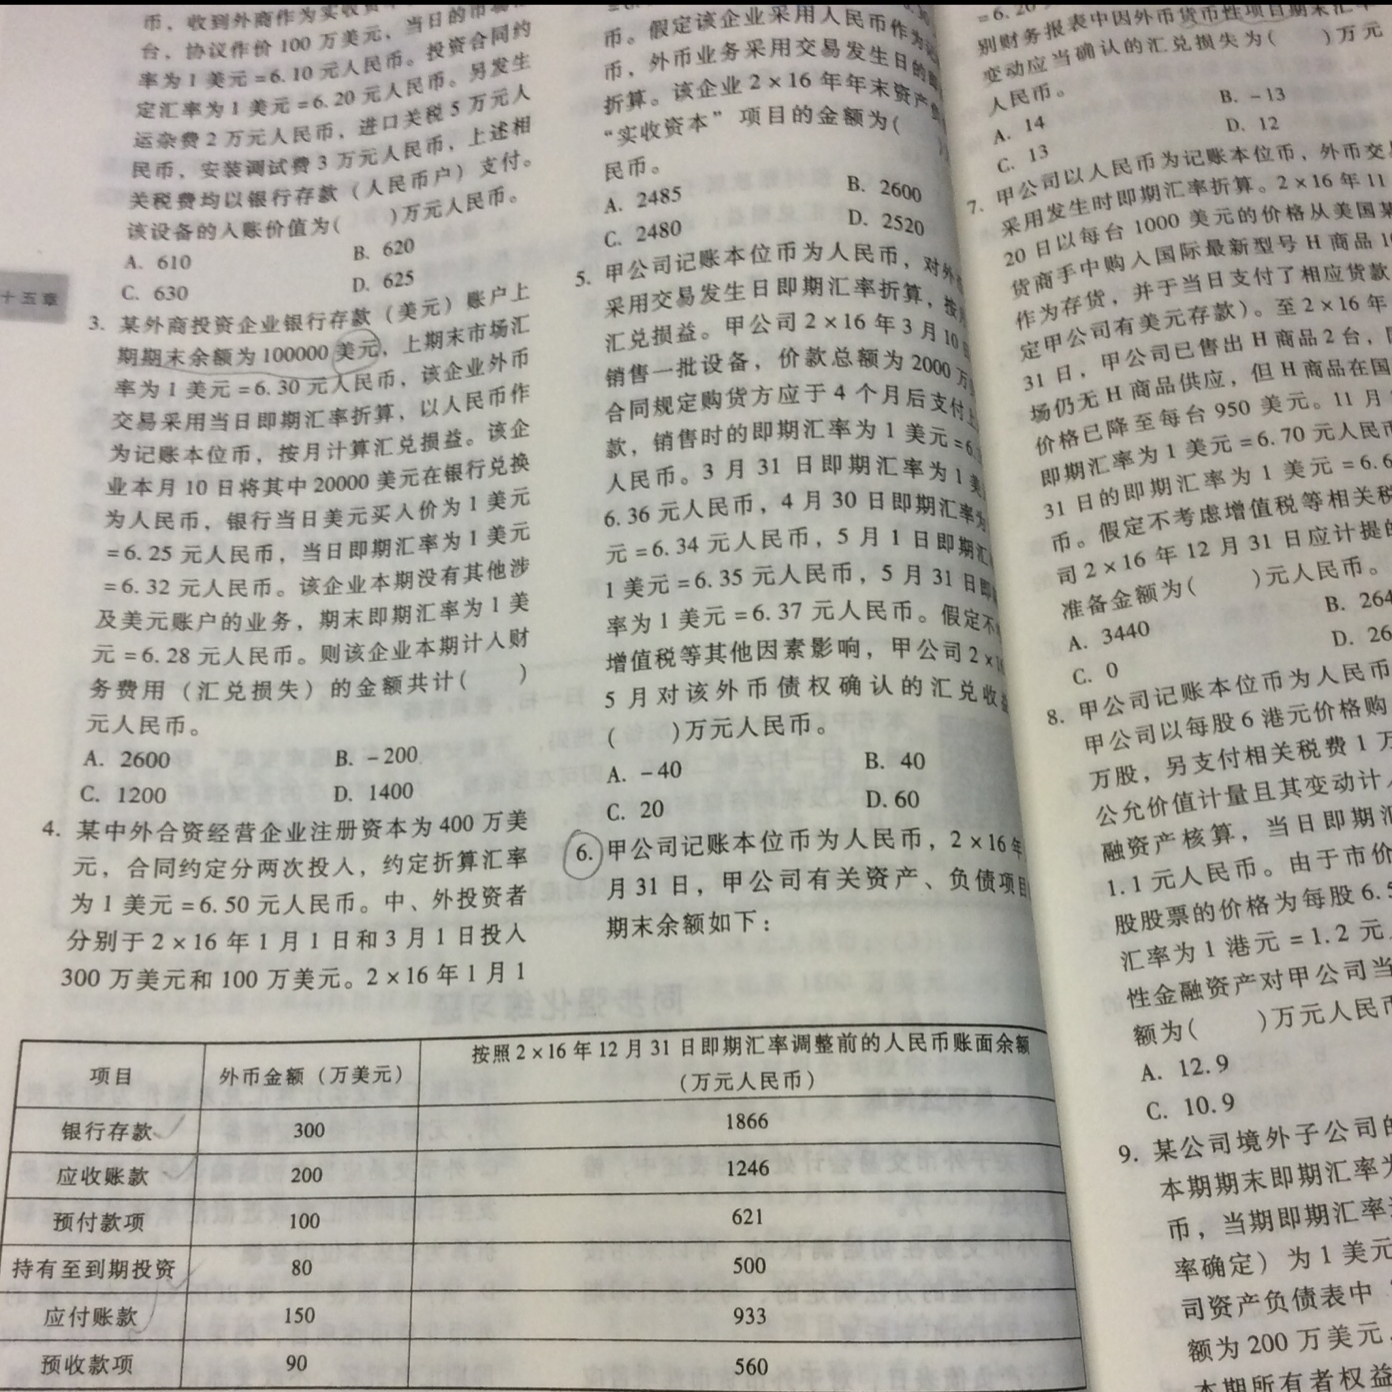 币，收到外商作为实收资
台，协议作价 100 万美元，当日的市场
率为 1 美元 =6.10 元人民币。投资合同约
定汇率为 1 美元 =6.20 元人民币。另发生
运杂费 2 万元人民币，进口关税 5 万元人
民币，安装调试费 3 万元人民币，上述相
关税费均以银行存款（人民币户）支付。
该设备的入账价值为(　　)万元人民币。
A. 610
B. 620
C. 630
D. 625
十五章
3. 某外商投资企业银行存款（美元）账户上
期期末余额为 100000 美元，上期末市场汇
率为 1 美元 =6.30 元人民币，该企业外币
交易采用当日即期汇率折算，以人民币作
为记账本位币，按月计算汇兑损益。该企
业本月 10 日将其中 20000 美元在银行兑换
为人民币，银行当日美元买入价为 1 美元
=6.25 元人民币，当日即期汇率为 1 美元
=6.32 元人民币。该企业本期没有其他涉
及美元账户的业务，期末即期汇率为 1 美
元 =6.28 元人民币。则该企业本期计入财
务费用（汇兑损失）的金额共计(　　)
元人民币。
A. 2600
B. -200
C. 1200
D. 1400
4. 某中外合资经营企业注册资本为 400 万美
元，合同约定分两次投入，约定折算汇率
为 1 美元 =6.50 元人民币。中、外投资者
分别于 2×16 年 1 月 1 日和 3 月 1 日投入
300 万美元和 100 万美元。2×16 年 1 月 1
币。假定该企业采用人民币作为记
币，外币业务采用交易发生日的即
折算。该企业 2×16 年年末资产负
“实收资本”项目的金额为(
民币。
A. 2485
B. 2600
C. 2480
D. 2520
5. 甲公司记账本位币为人民币，对外
采用交易发生日即期汇率折算，按
汇兑损益。甲公司 2×16 年 3 月 10
销售一批设备，价款总额为 2000 万
合同规定购货方应于 4 个月后支付
款，销售时的即期汇率为 1 美元 =6.
人民币。3 月 31 日即期汇率为 1 美
6.36 元人民币，4 月 30 日即期汇率为
元 =6.34 元人民币，5 月 1 日即期汇
1 美元 =6.35 元人民币，5 月 31 日即
率为 1 美元 =6.37 元人民币。假定不
增值税等其他因素影响，甲公司 2×
5 月对该外币债权确认的汇兑收益
(　　)万元人民币。
A. -40
B. 40
C. 20
D. 60
6. 甲公司记账本位币为人民币，2×16 年
月 31 日，甲公司有关资产、负债项目
期末余额如下：
项目 外币金额（万美元） 按照 2×16 年 12 月 31 日即期汇率调整前的人民币账面余额
（万元人民币）
银行存款 300 1866
应收账款 200 1246
预付款项 100 621
持有至到期投资 80 500
应付账款 150 933
预收款项 90 560
=6.20
别财务报表中因外币货币性项目期末汇率
变动应当确认的汇兑损失为(　　)万元
人民币。
A. 14
B. -13
C. 13
D. 12
7. 甲公司以人民币为记账本位币，外币交
采用发生时即期汇率折算。2×16 年 11
20 日以每台 1000 美元的价格从美国某
货商手中购入国际最新型号 H 商品 1
作为存货，并于当日支付了相应货款
定甲公司有美元存款)。至 2×16 年
31 日，甲公司已售出 H 商品 2 台，
场仍无 H 商品供应，但 H 商品在国
价格已降至每台 950 美元。11 月
即期汇率为 1 美元 =6.70 元人民币
31 日的即期汇率为 1 美元 =6.6
币。假定不考虑增值税等相关税
司 2×16 年 12 月 31 日应计提的
准备金额为(　　)元人民币。
A. 3440
B. 264
C. 0
D. 26
8. 甲公司记账本位币为人民币
甲公司以每股 6 港元价格购
万股，另支付相关税费 1 万
公允价值计量且其变动计
融资产核算，当日即期汇
1.1 元人民币。由于市价
股股票的价格为每股 6.5
汇率为 1 港元 =1.2 元
性金融资产对甲公司当
额为(　　)万元人民币
A. 12.9
C. 10.9
9. 某公司境外子公司的
本期期末即期汇率为
币，当期即期汇率
率确定）为 1 美元
司资产负债表中
额为 200 万美元
本期所有者权益